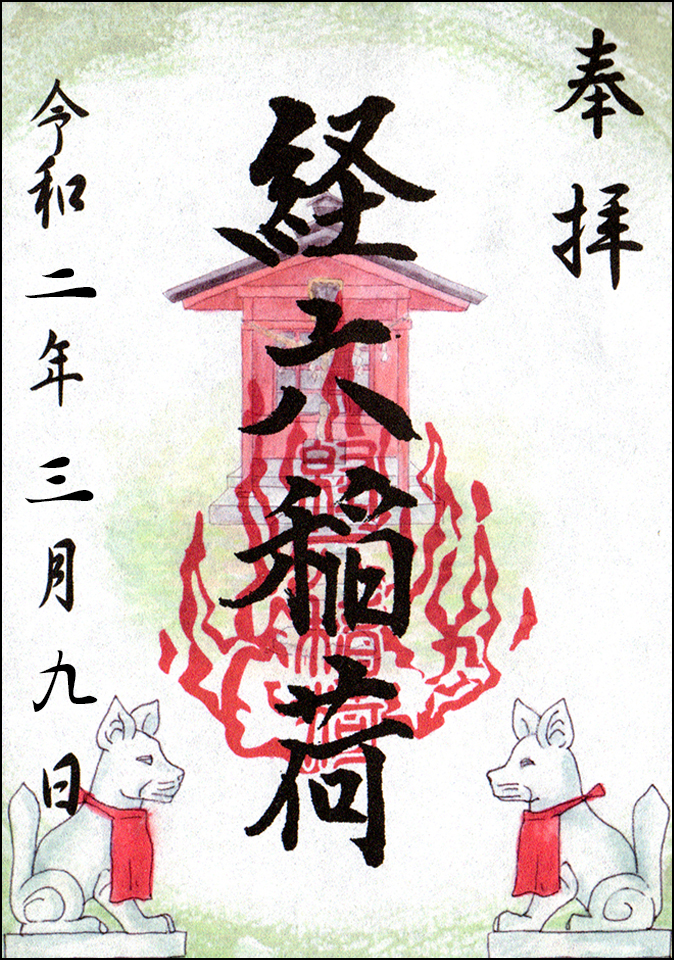 奉拝
経六稲荷
令和二年三月九日